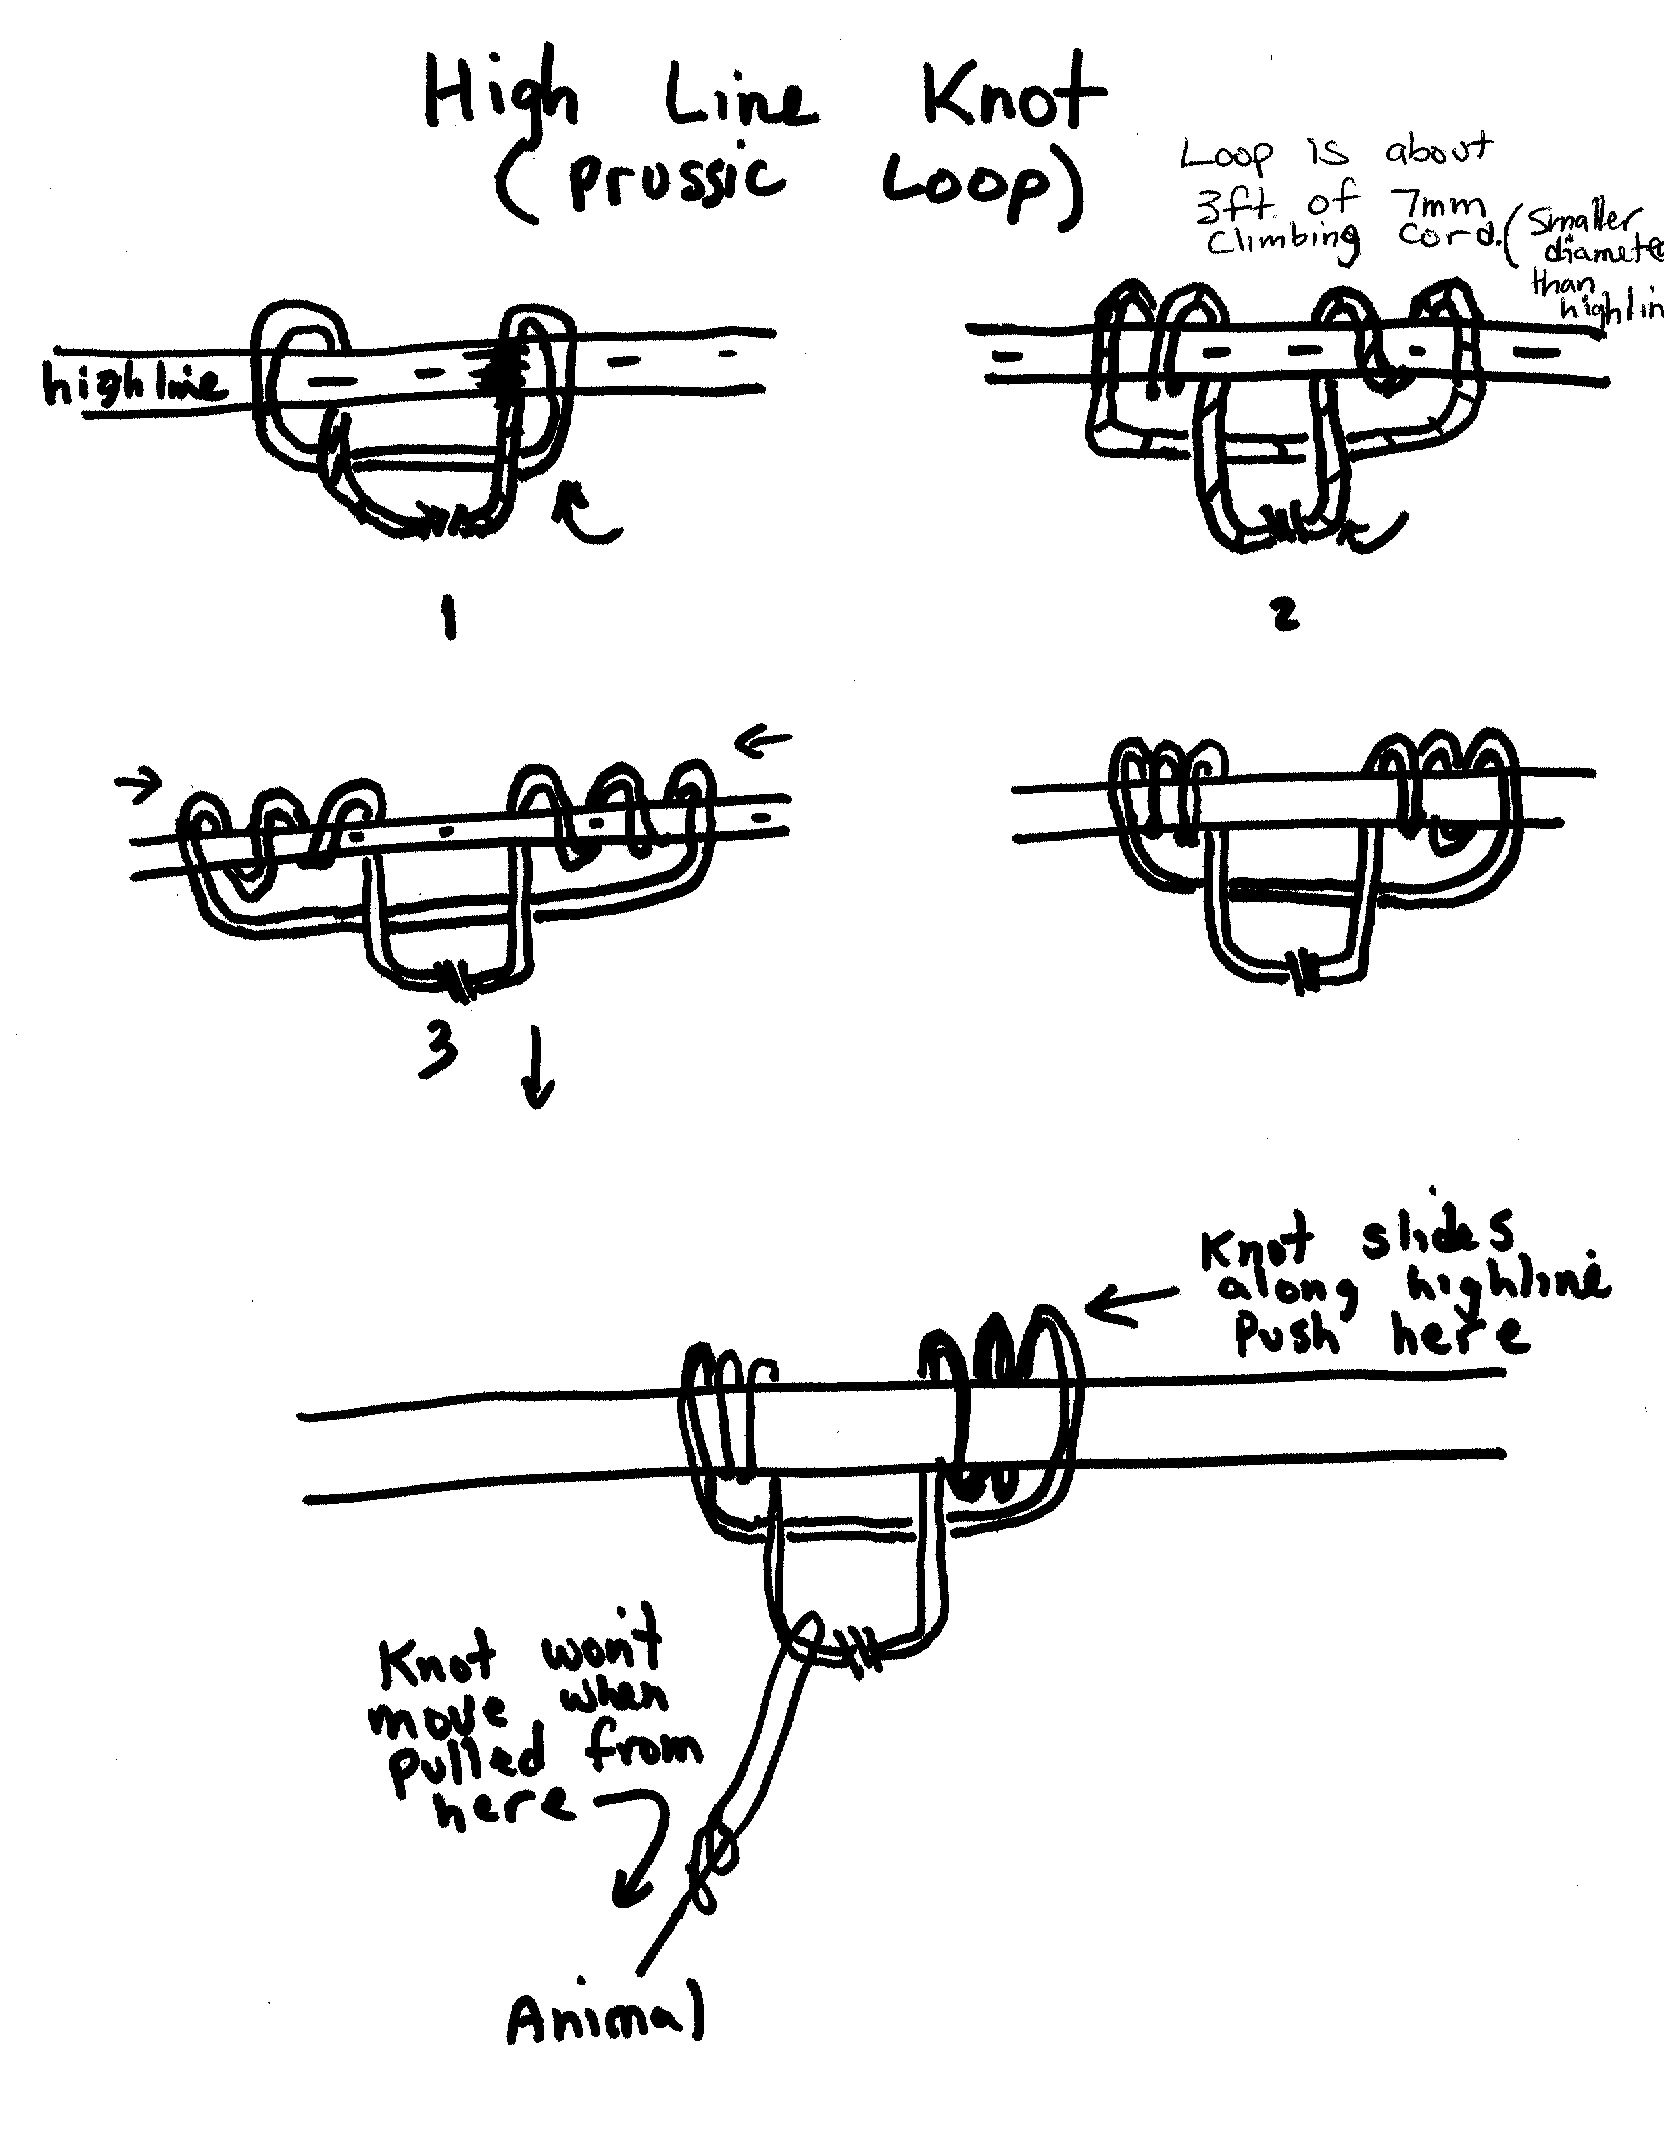 High Line Knot
(Prussic Loop)
Loop is about
3ft of 7mm
climbing cord. (Smaller
diamete
than
highlin
highline
1
2
3
Knot slides
along highline
Push here
Knot won't
move when
pulled from
here
Animal